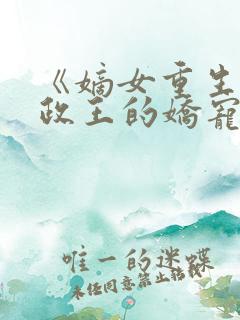 《嫡女重生
政王的嬌寵
唯一的迷蝶
未经同意禁止转载